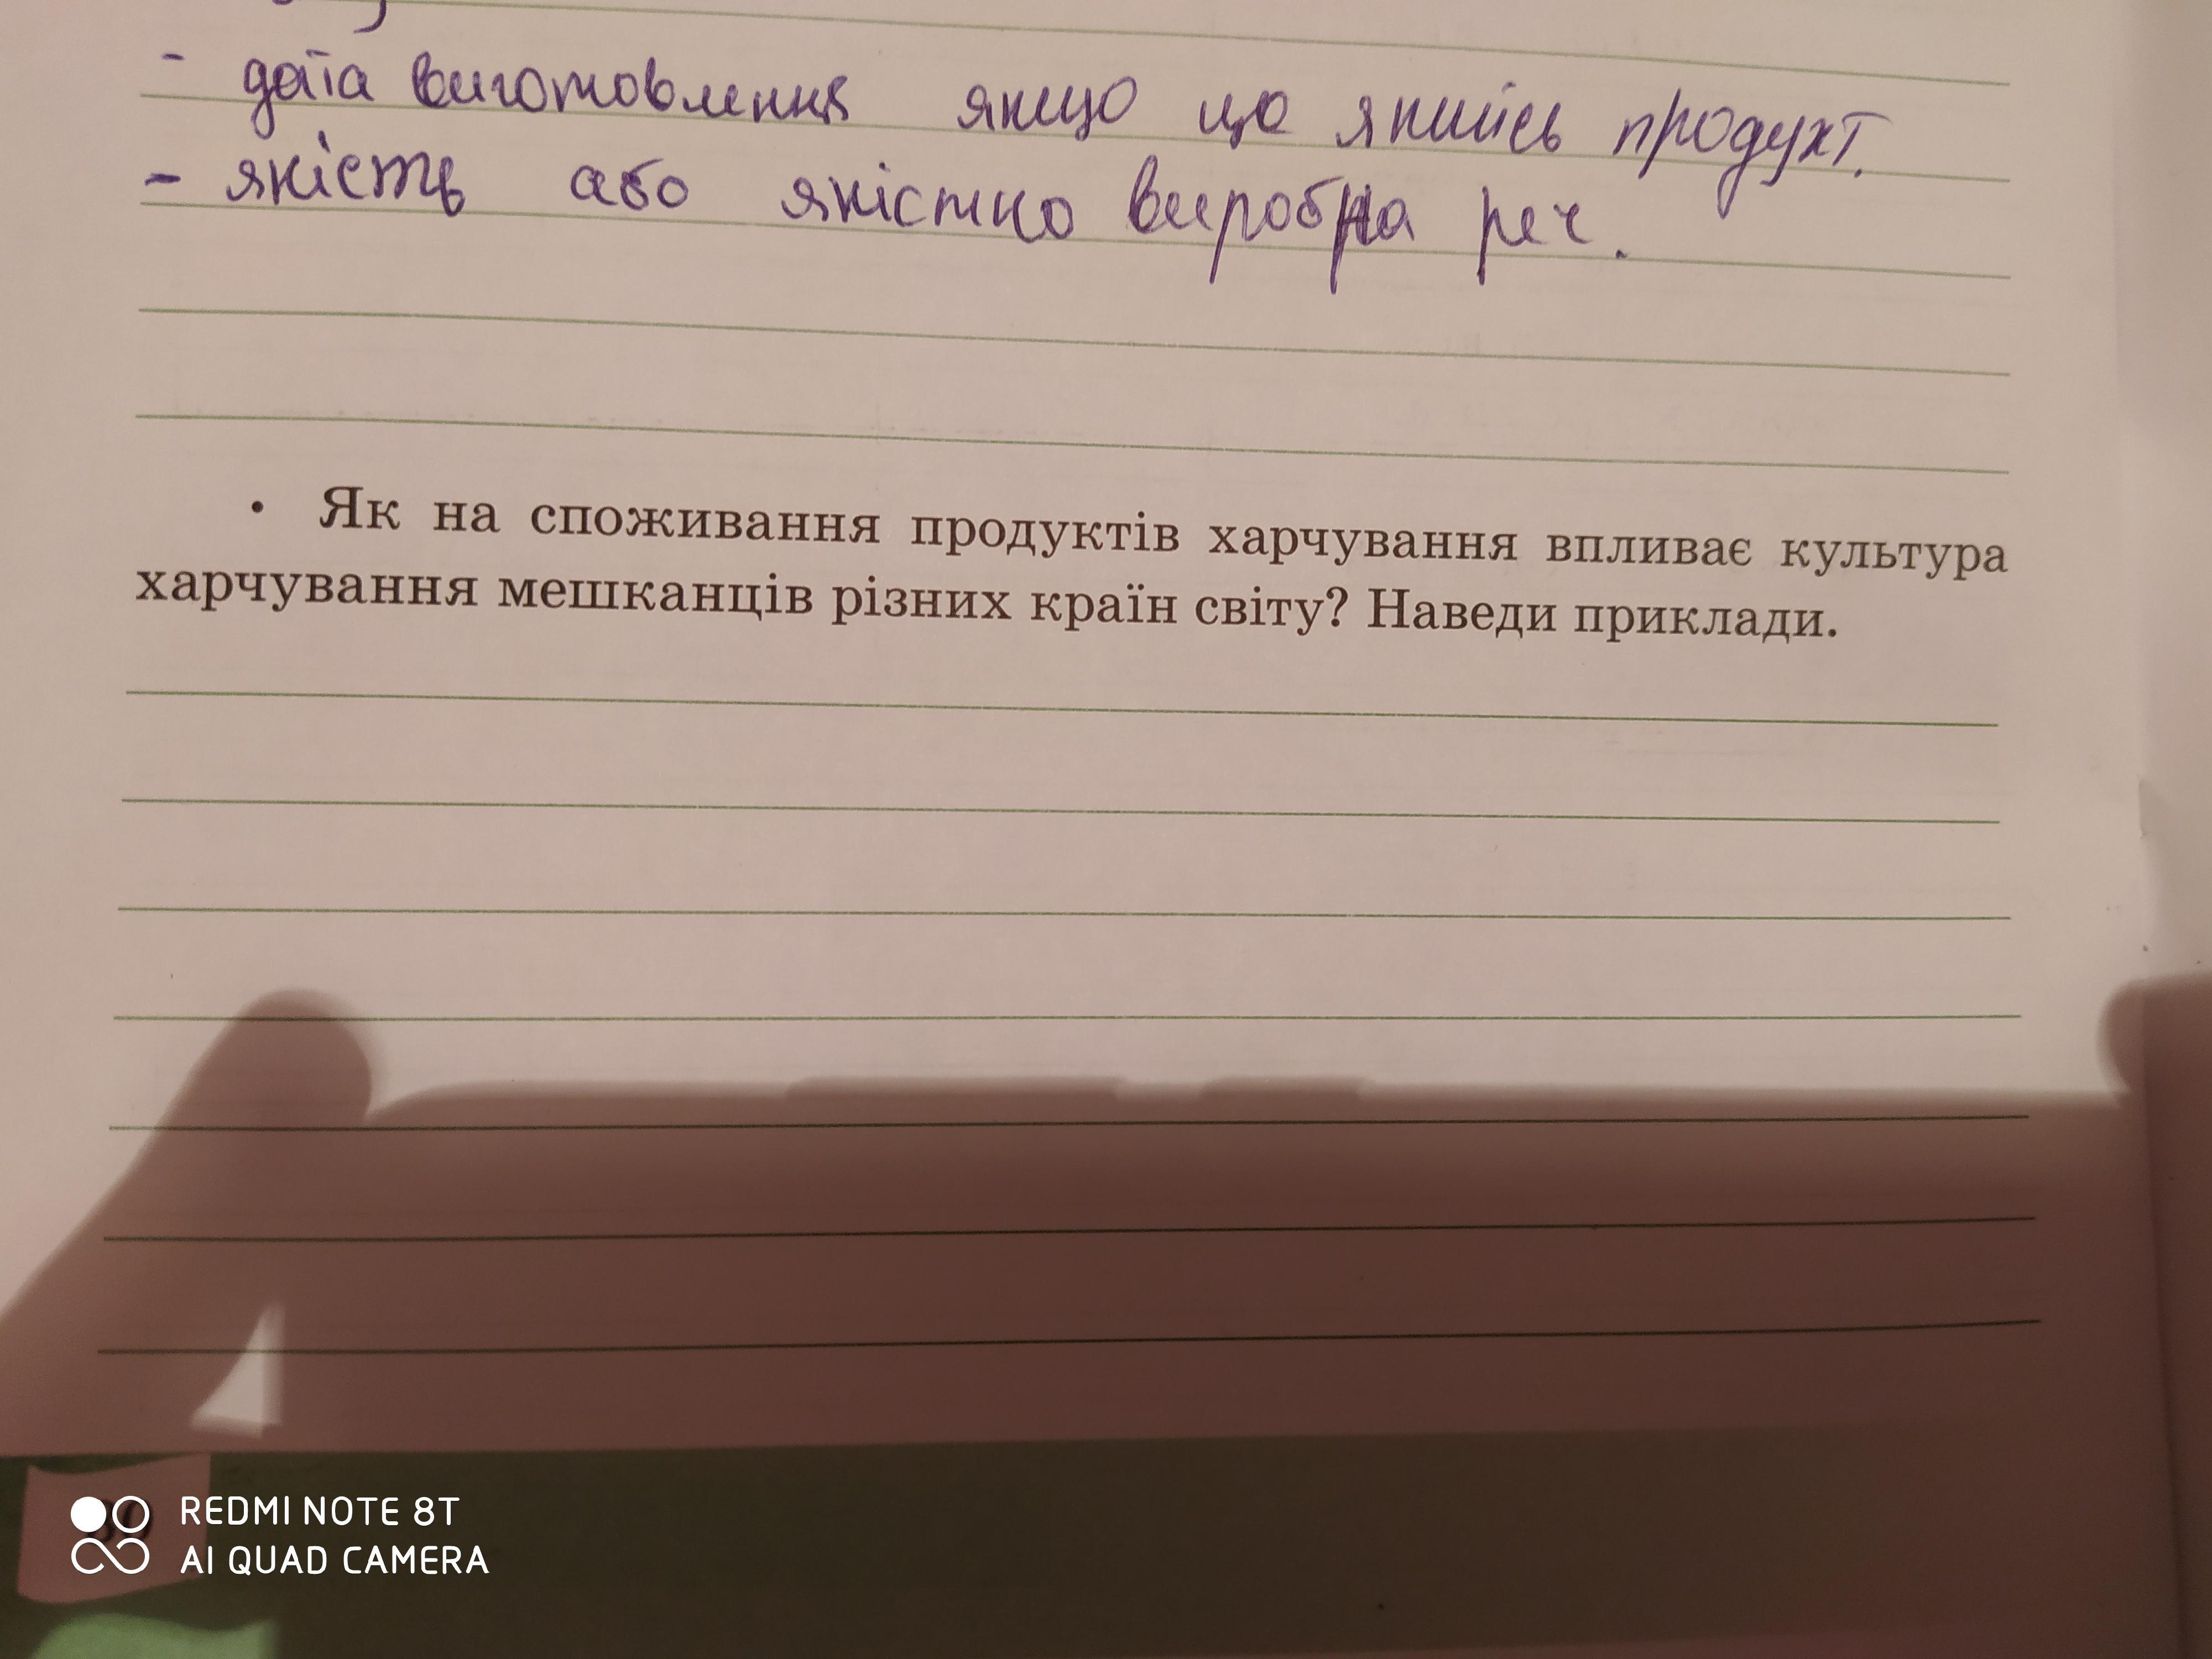 - дата виготовлення якщо це якийсь продукт.
- якість або якістно виробна реч.
• Як на споживання продуктів харчування впливає культура
харчування мешканців різних країн світу? Наведи приклади.
REDMI NOTE 8T
AI QUAD CAMERA